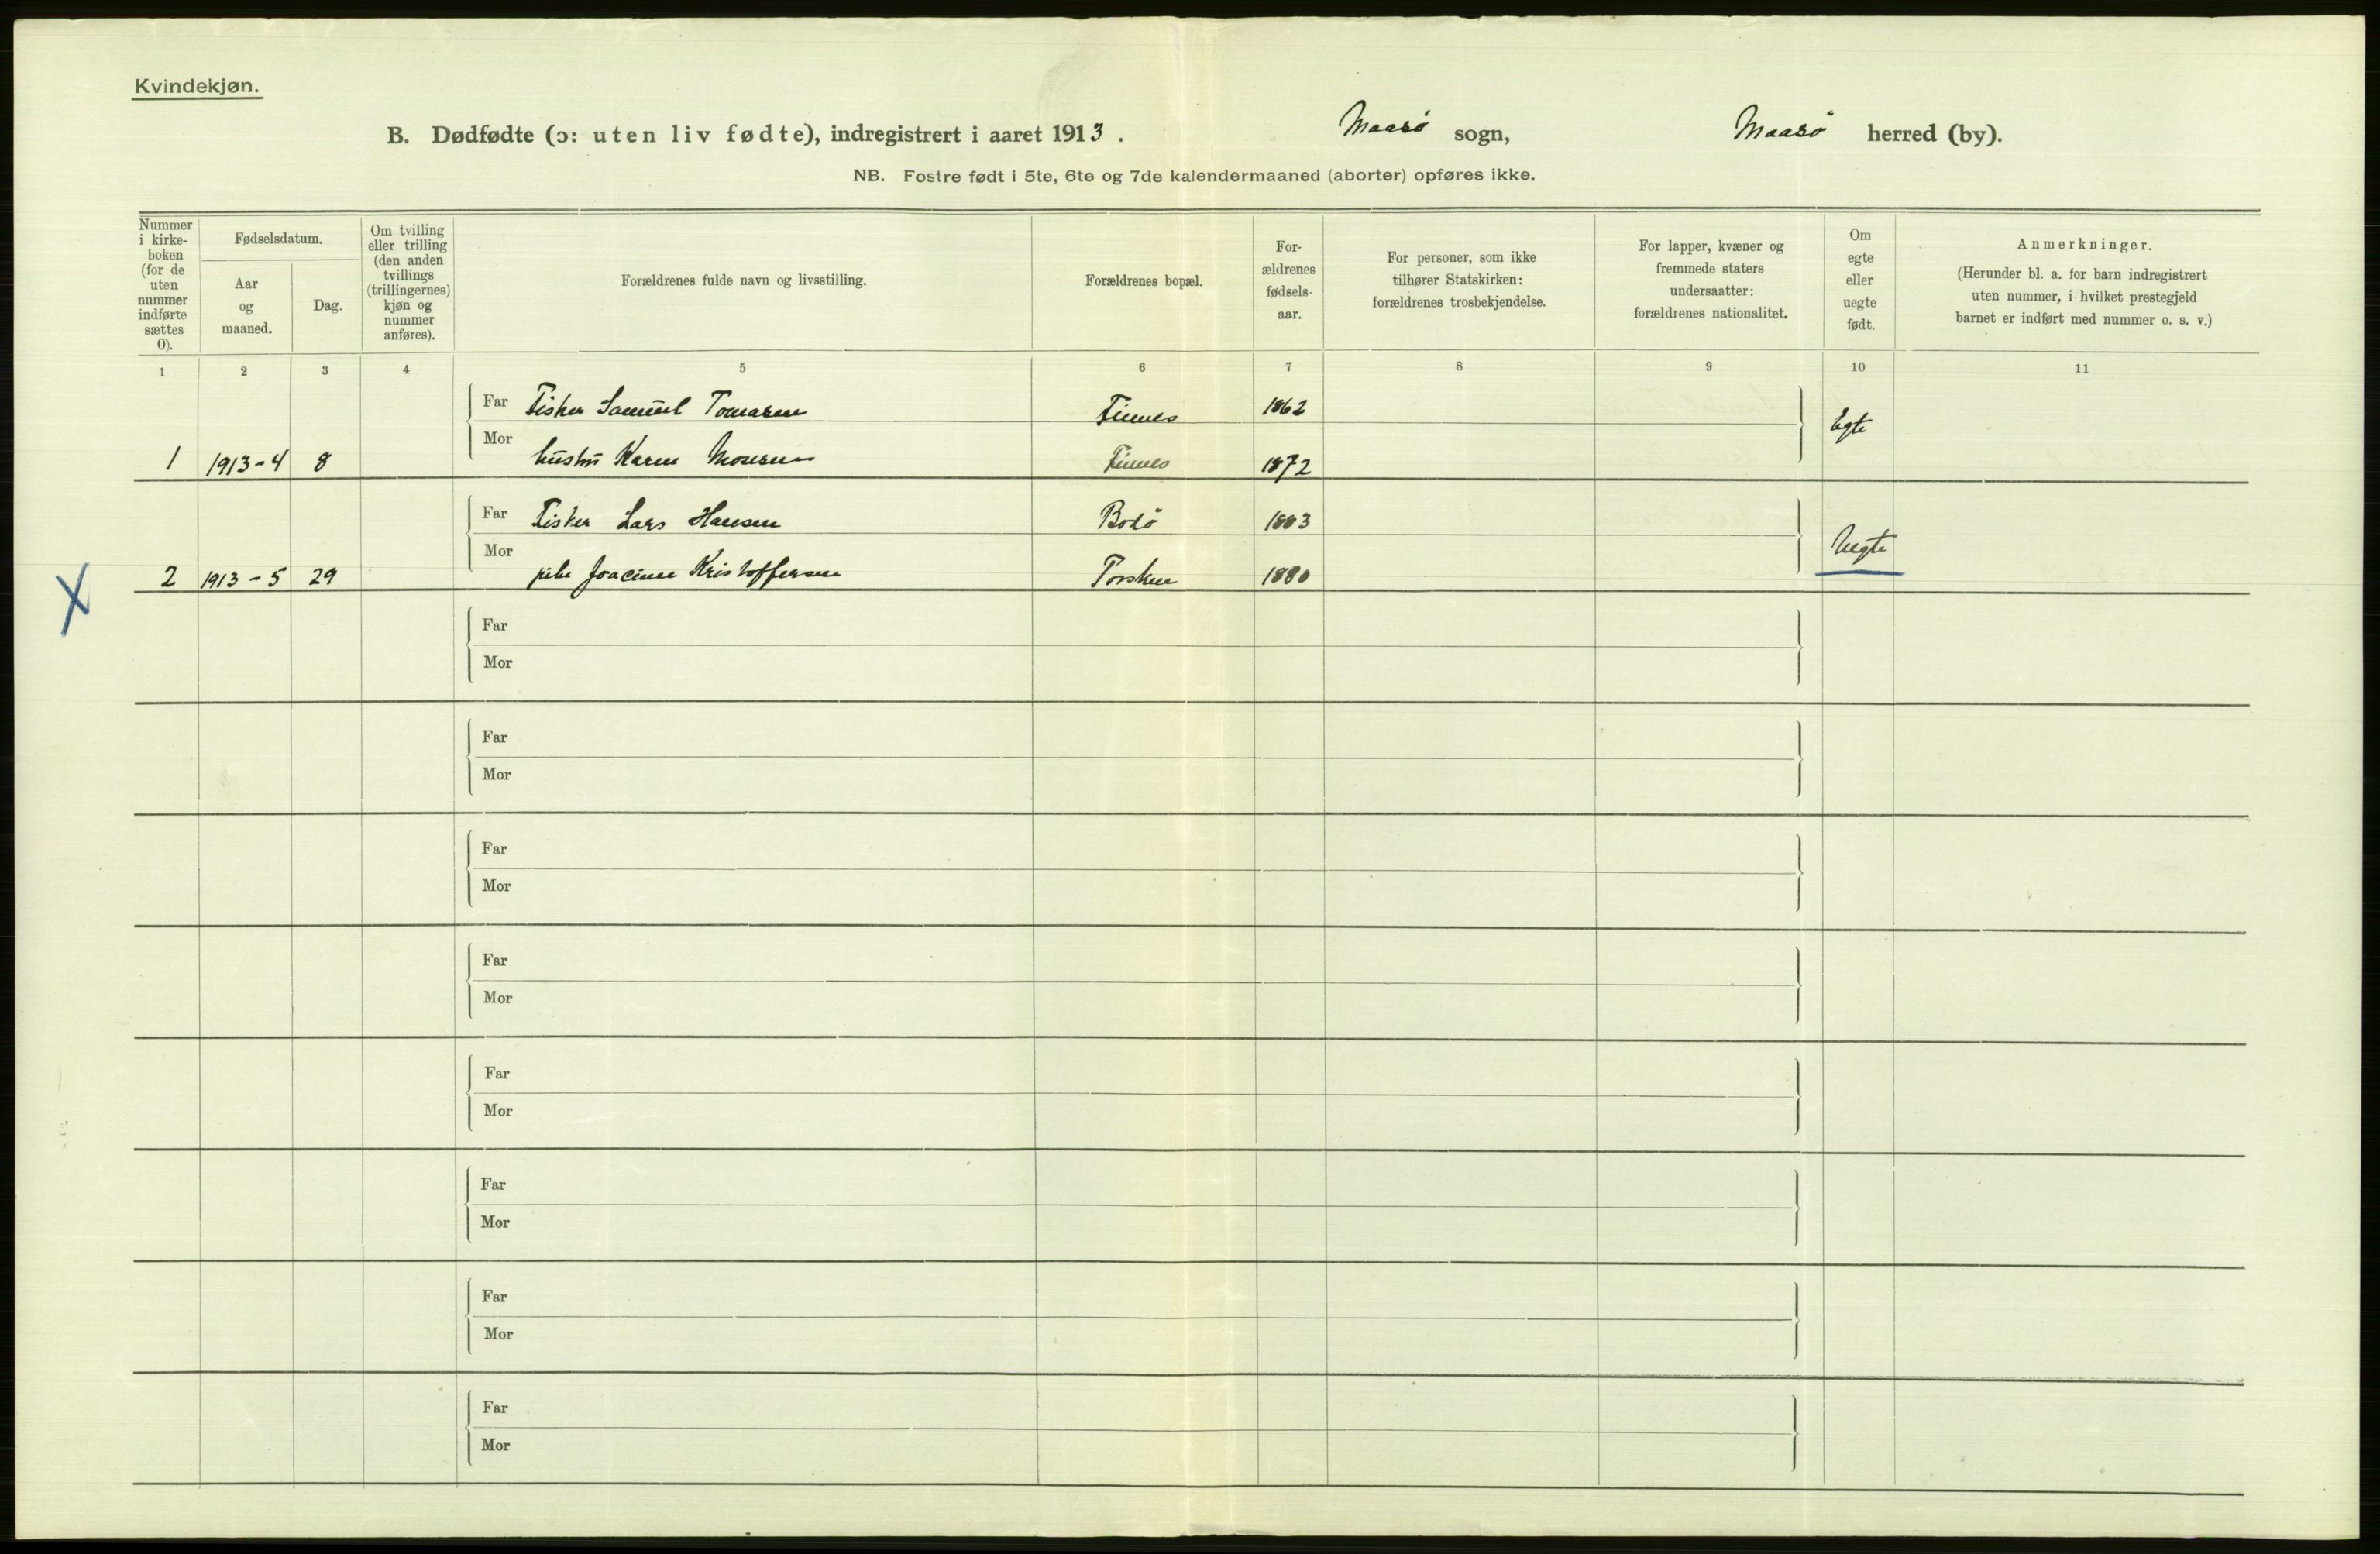 Kvindekjøn.
B. Dødfødte (ɔ: uten liv fødte), indregistrert i aaret 1913. Maasö sogn, Maasö herred (by).
NB. Fostre født i 5te, 6te og 7de kalendermaaned (aborter) opføres ikke.
Nummer i kirke- boken (for de uten nummer indførte sættes 0).
Fødselsdatum.
Aar og maaned.
Dag.
Om tvilling eller trilling (den anden tvillings (trillingernes) kjøn og nummer anføres).
Forældrenes fulde navn og livsstilling.
Forældrenes bopæl.
For- ældrenes fødsels- aar.
For personer, som ikke tilhører Statskirken: forældrenes trosbekjendelse.
For lapper, kvæner og fremmede staters undersaatter: forældrenes nationalitet.
Om egte eller uegte født.
Anmerkninger.
(Herunder bl. a. for barn indregistrert uten nummer, i hvilket prestegjeld barnet er indført med nummer o. s. v.)
1 2 3 4 5 6 7 8 9 10 11
Far Fisker Samuel Tomasen Finnes 1862 Egte
1 1913-4 8 Mor hustru Karen Finnes 1872
Far Fisker Lars Hansen Bodö 1883 Uegte
X 2 1913-5 29 Mor pike Joacime Kristoffersen Torsken 1880
Far
Mor
Far
Mor
Far
Mor
Far
Mor
Far
Mor
Far
Mor
Far
Mor
Far
Mor